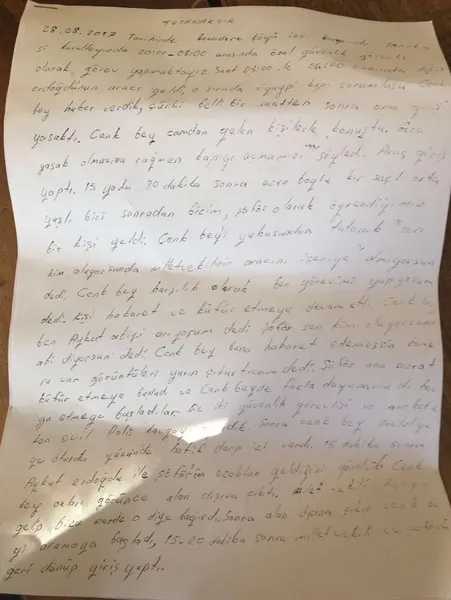 TUTANAKTIR
28.08.2017 Tarihinde bozcaada köyü
si kurultayında 20:00-08:00 arasında özel güvenlik görevlisi
olarak görev yapmaktayız. Saat 03:00 ile arasında Aykut
erdoğdunun aracı geldi, o sırada vizyapi kapı sorumlusu Cenk
bey haber verdik, çünkü belli bir saatten sonra araç girişi
yasaktı. Cenk bey camdan gelen kişilerle konuştu. Gece
yasak olmasına rağmen kapıyı açmamızı söyledi. Araç giriş
yaptı. 15 yada 30 dakika sonra uzun boylu kır saçlı orta
yaşlı biri sonradan bizim, şoför olarak öğrendiğimiz
bir kişi geldi. Cenk bey'i yakasından tutarak "sen
kim oluyorsunda milletvekilinin aracını içeriye almıyorsun
dedi. Cenk bey karşılık olarak ben görevimi yapıyorum
dedi. Kişi hakaret ve küfür etmeye devam etti. Cenk be
ben Aykut abiyi arıyorum dedi şoför sen kim oluyorsun
abi diyorsun dedi. Cenk bey bana hakaret edemessin kame
ra var görüntüleri yarın çıkartıcam dedi. Şoför ana avrat
küfür etmeye başladı ve Cenk beyde fazla dayanamadı
ga etmeye başladılar. Biz iki güvenlik görevlisi ve markette
ten sivil Polis kavgayı dik. Sonra cenk bey sandalye
ye oturdu yüzünde hafif darp izi vardı. 15 dakika sonra
Aykut erdoğdu ile şöförün uzaktan geldiğini gördük. Cenk
bey onları görünce alan dışına çıktı. vekili
gelip bize nerde o diye bağırdı. Sonra alan dışına çıkıp cenk be
yi aramaya başladı, 15-20 dakika sonra milletvekili ve şoförü
geri dönüp giriş yaptı.